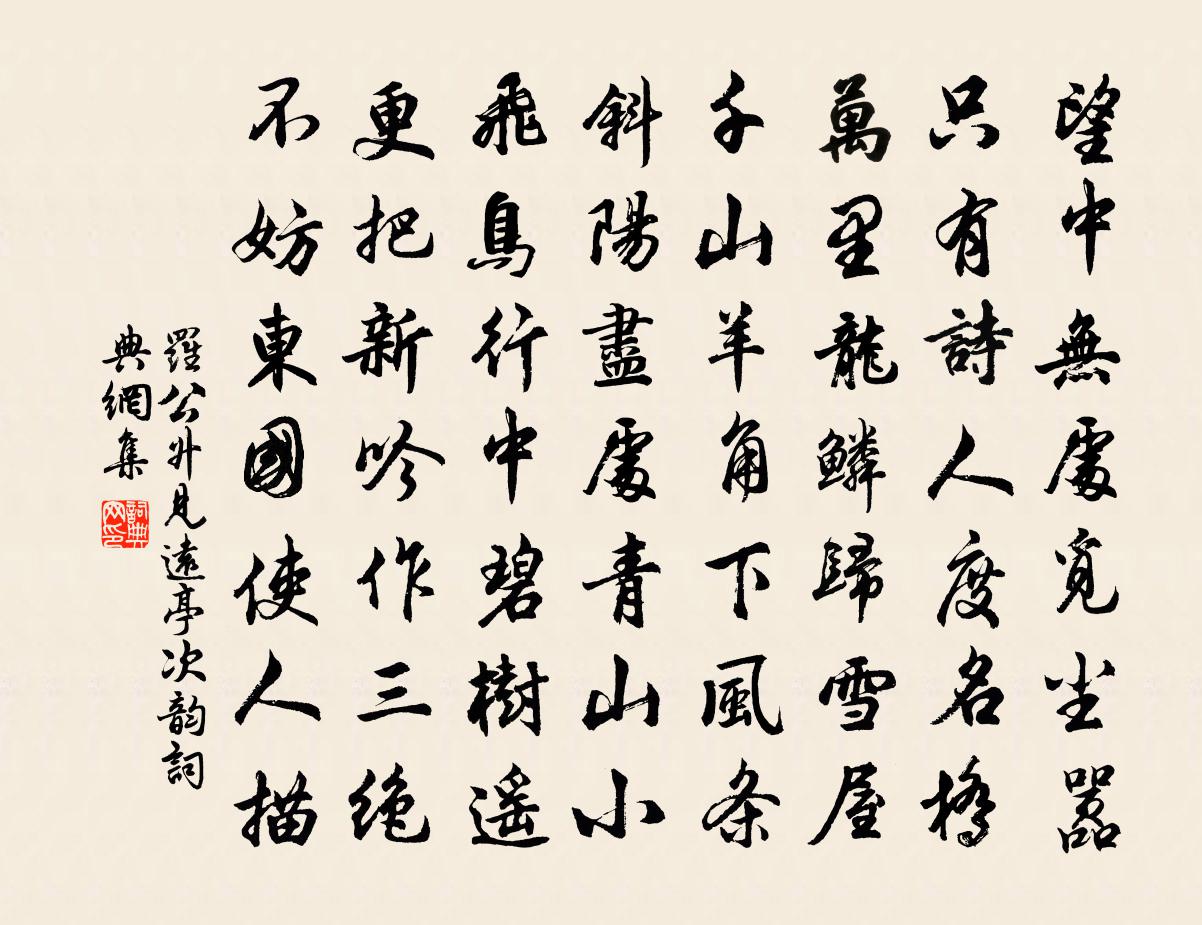 望中無處覓尘嚣
只有詩人度名橋
萬里龍鱗歸雪屋
千山羊角下風条
斜陽盡處青山小
飛鳥行中碧樹遥
更把新吟作三绝
不妨東國使人描
羅公升見遠亭次韵詞
典網集
詞典
网印